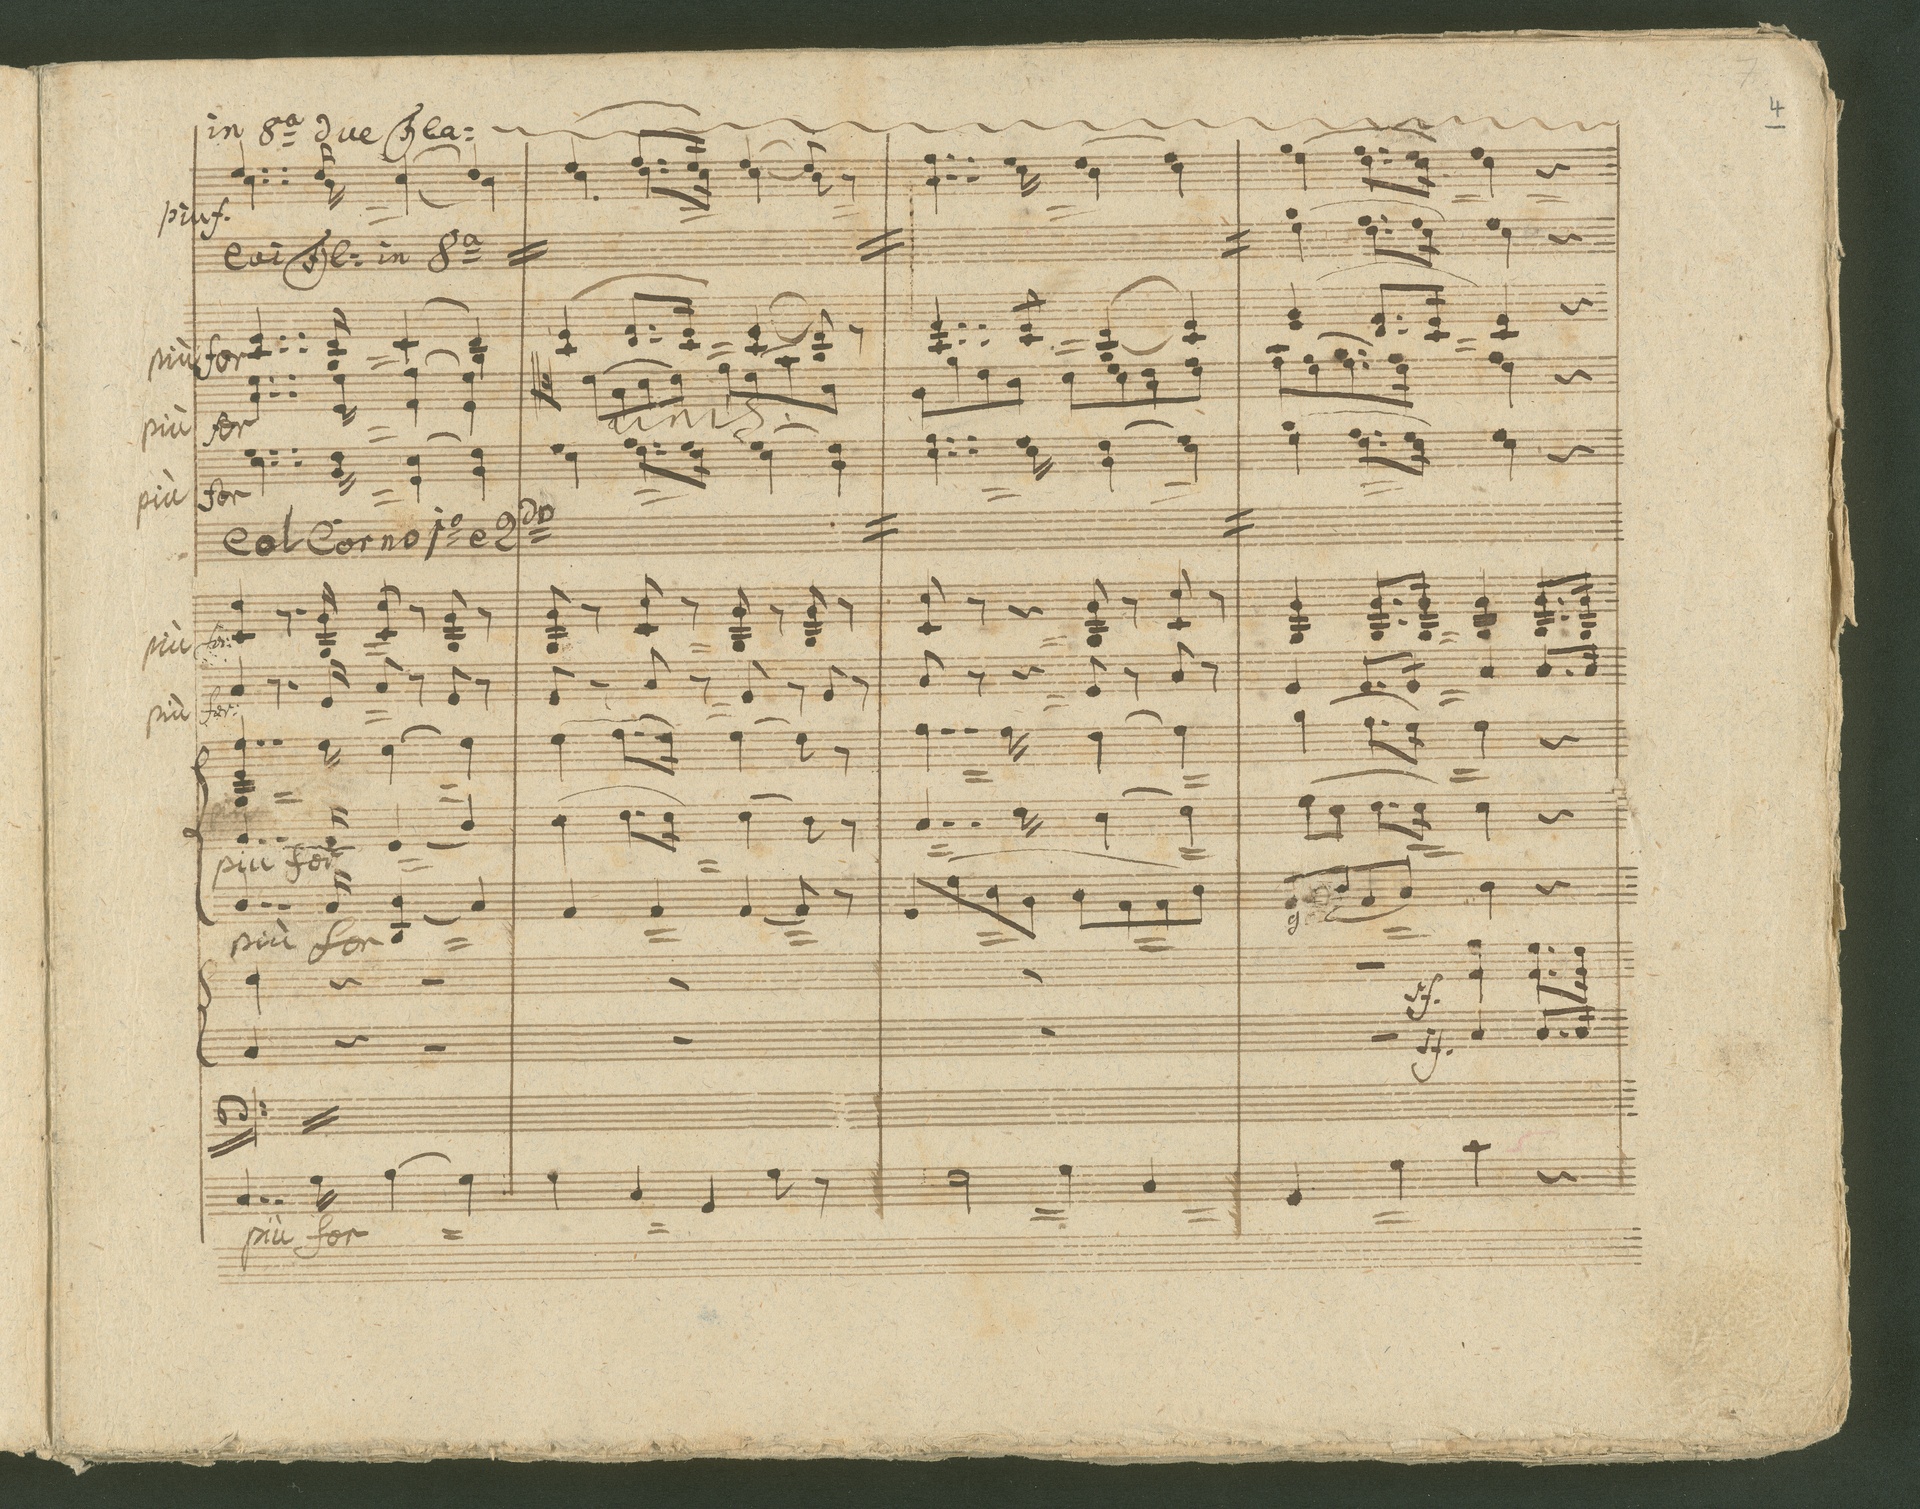 7
4
in 8ª due Fla:
più f.
Coi Fl: in 8ª
più for
più for
unis.
più for
Col Corno 1º e 2do
più for:
più for:
più for
più for
sf.
sf.
più for